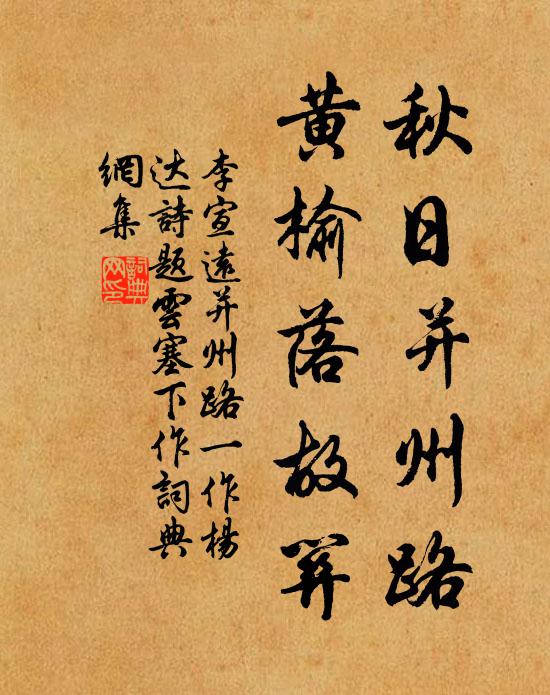 秋日并州路
黄榆落故关
李宣遠并州路一作楊
达詩题雲塞下作詞典
網集
詞典
网印